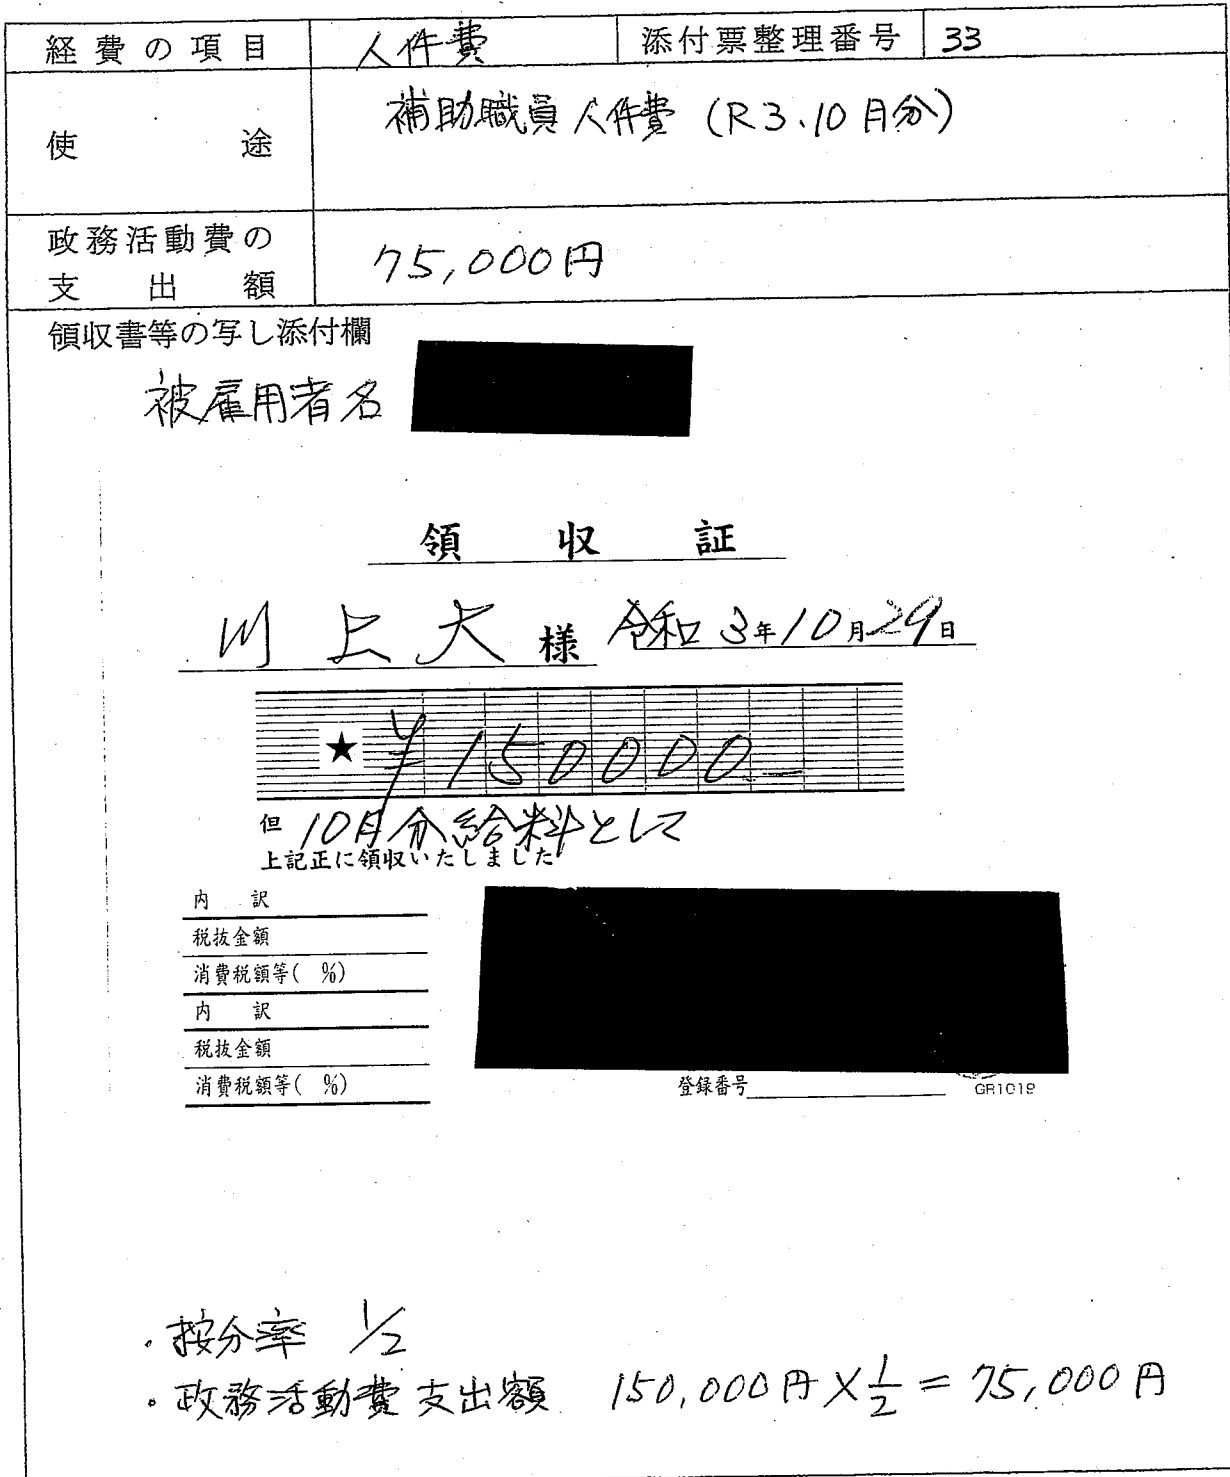 経費の項目 人件費 添付票整理番号 33
使途 補助職員人件費 (R3.10月分)
政務活動費の
支出額 75,000円
領収書等の写し添付欄
被雇用者名
領収証
川上大様 令和3年10月29日
★ ¥150000-
但 10月分給料として
上記正に領収いたしました
内訳
税抜金額
消費税額等( %)
内訳
税抜金額
消費税額等( %)
登録番号 GR1019
・按分率 1/2
・政務活動費支出額 150,000円×1/2=75,000円